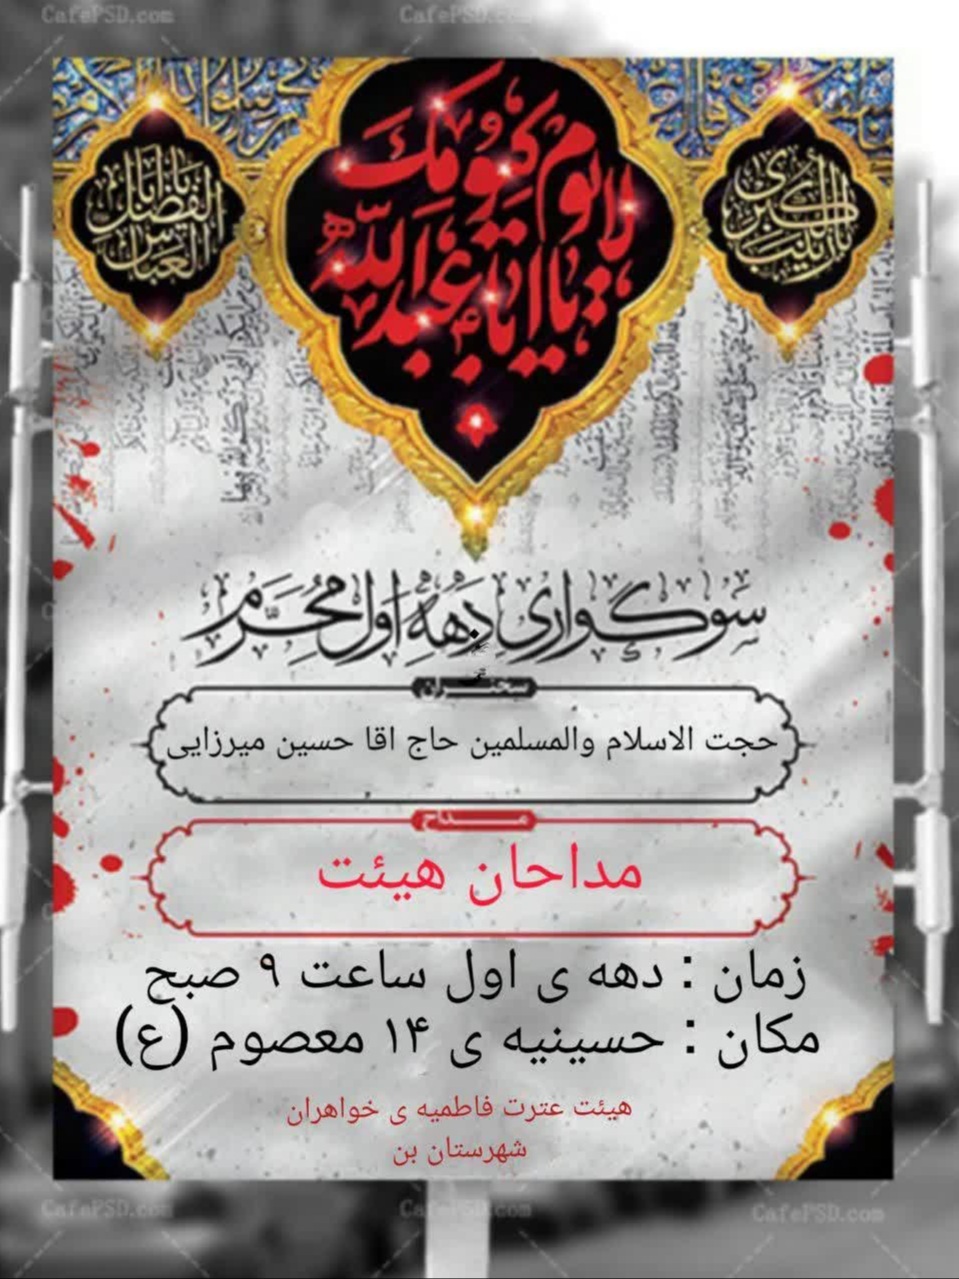 CafePSD.com
CafePSD.com
لا یوم کیومک
یا اباعبدالله
یا زینب الکبری
یا اباالفضل العباس
سوگواری دهه اول محرم
سخنران
حجت الاسلام والمسلمین حاج اقا حسین میرزایی
مداح
مداحان هیئت
زمان : دهه ی اول ساعت ۹ صبح
مکان : حسینیه ی ۱۴ معصوم (ع)
هیئت عترت فاطمیه ی خواهران
شهرستان بن
CafePSD.com
CafePSD.com
CafePSD.com